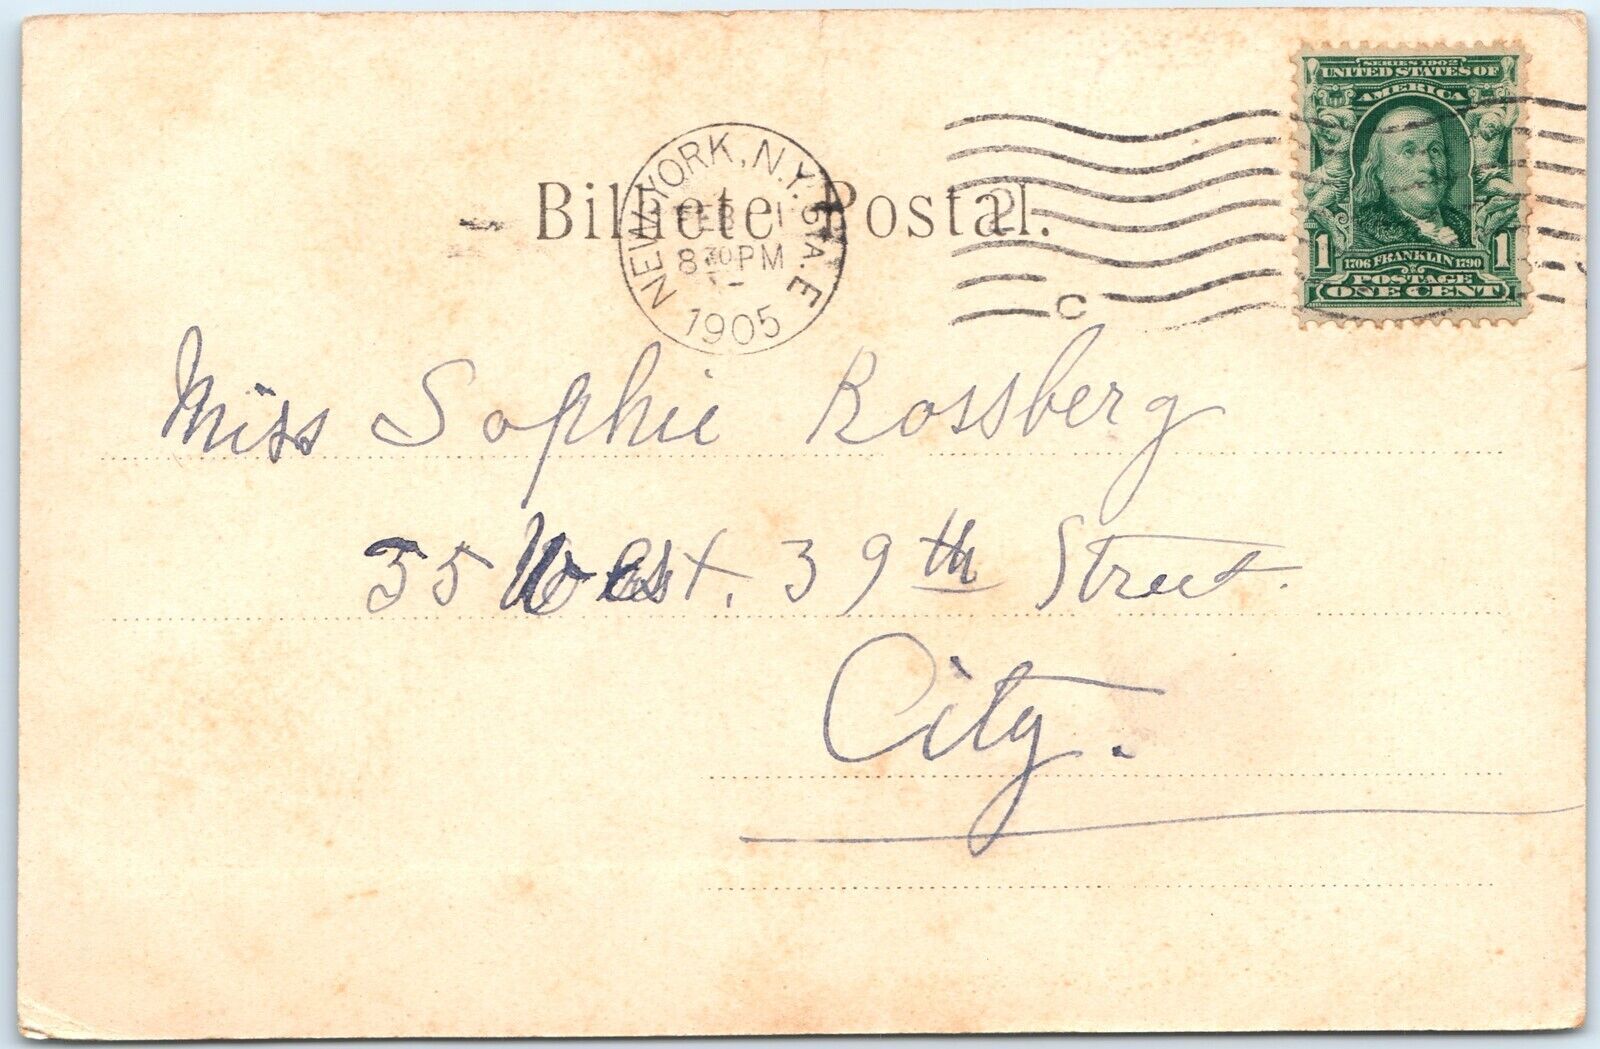 SERIES 1902
UNITED STATES OF
AMERICA
1 1706 FRANKLIN 1790 1
POSTAGE
ONE CENT
NEW YORK, N.Y. STA. E
FEB 1
8 30 PM
1905
2
C
Bilhete Postal.
Miss Sophie Rossberg
35 West. 39th Street.
City.